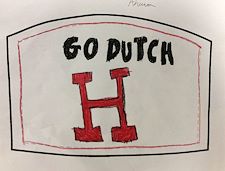 GO DUTCH
H